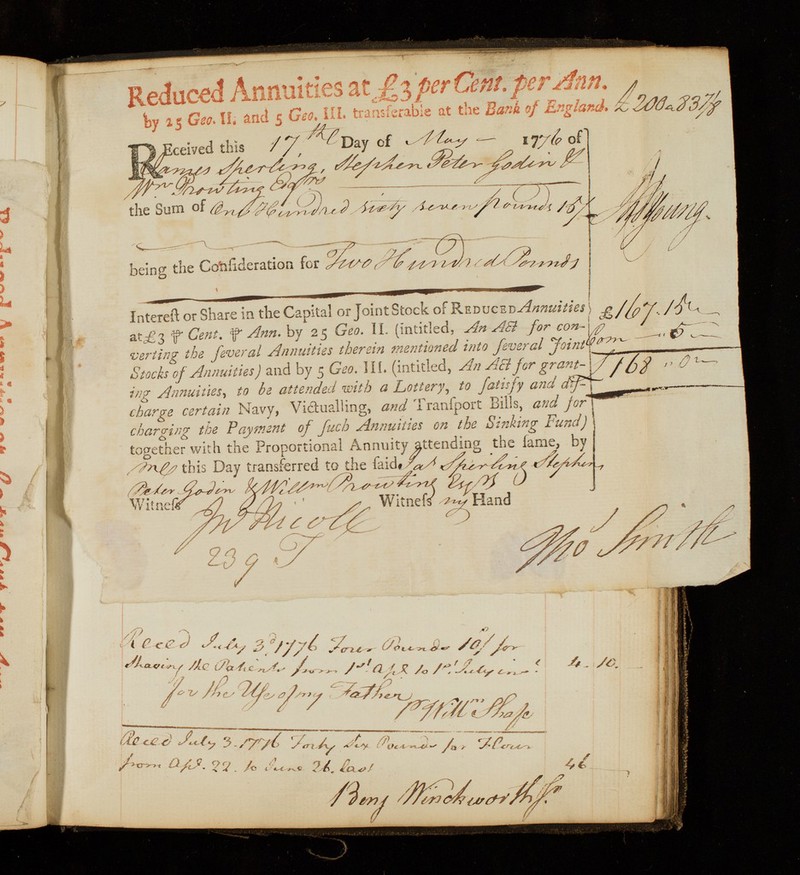 Reduced Annuities at £3 per Cent. per Ann.
by 25 Geo. II. and 5 Geo. III. transferable at the Bank of England.
£200 a 83 7/8
REceived this 17th Day of May — 1776 of
James Sperling, Stephen Peter Godin &
Wm. Prowting Esqrs
the Sum of One Hundred sixty seven pounds 15/
being the Consideration for Two Hundred Pounds
Interest or Share in the Capital or Joint Stock of REDUCED Annuities
at £3 ⅌ Cent. ⅌ Ann. by 25 Geo. II. (intitled, An Act for con-
verting the several Annuities therein mentioned into several Joint
Stocks of Annuities) and by 5 Geo. III. (intitled, An Act for grant-
ing Annuities, to be attended with a Lottery, to satisfy and dis-
charge certain Navy, Victualling, and Transport Bills, and for
charging the Payment of such Annuities on the Sinking Fund)
together with the Proportional Annuity attending the same, by
me this Day transferred to the said Jas Sperling Stephen
Peter Godin & Willm Prowting Esqrs
Witness Witness my Hand
Jno Nicoll
Thos Smith
Young
£167. 15
Com 5
£168 " 0
Receed July 3d 1776 Four Pounds 10s/ for
Shaving the Patients from 1st Apl to 1st July inst 4 - 10.
for the Use of my Father
pr Willm Shape
Receed July 3. 1776 Forty Six Pounds for Flour
from Apl. 22. to June 26. last 46
Benj Winckworth Jr